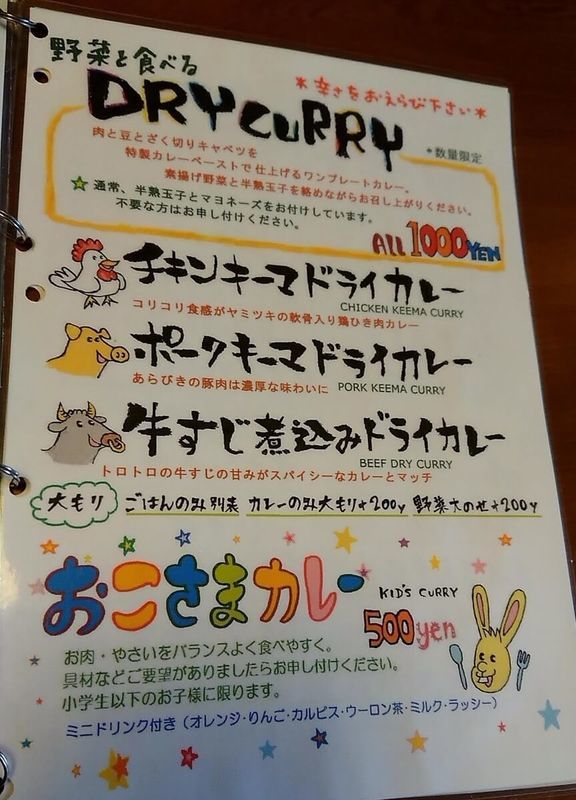 野菜と食べる
DRY CURRY
*辛さをおえらび下さい*
*数量限定
肉と豆とざく切りキャベツを
特製カレーペーストで仕上げるワンプレートカレー。
素揚げ野菜と半熟玉子を絡めながらお召し上がりください。
☆通常、半熟玉子とマヨネーズをお付けしています。
不要な方はお申し付けください。
ALL 1000 YEN
チキンキーマドライカレー
CHICKEN KEEMA CURRY
コリコリ食感がヤミツキの軟骨入り鶏ひき肉カレー
ポークキーマドライカレー
あらびきの豚肉は濃厚な味わいに PORK KEEMA CURRY
牛すじ煮込みドライカレー
BEEF DRY CURRY
トロトロの牛すじの甘みがスパイシーなカレーとマッチ
大モリ ごはんのみ カレーのみ大モリ+200y 野菜大のせ+200y
おこさまカレー
KID'S CURRY
500 yen
お肉・やさいをバランスよく食べやすく。
具材などご要望がありましたらお申し付けください。
小学生以下のお子様に限ります。
ミニドリンク付き（オレンジ・りんご・カルピス・ウーロン茶・ミルク・ラッシー）